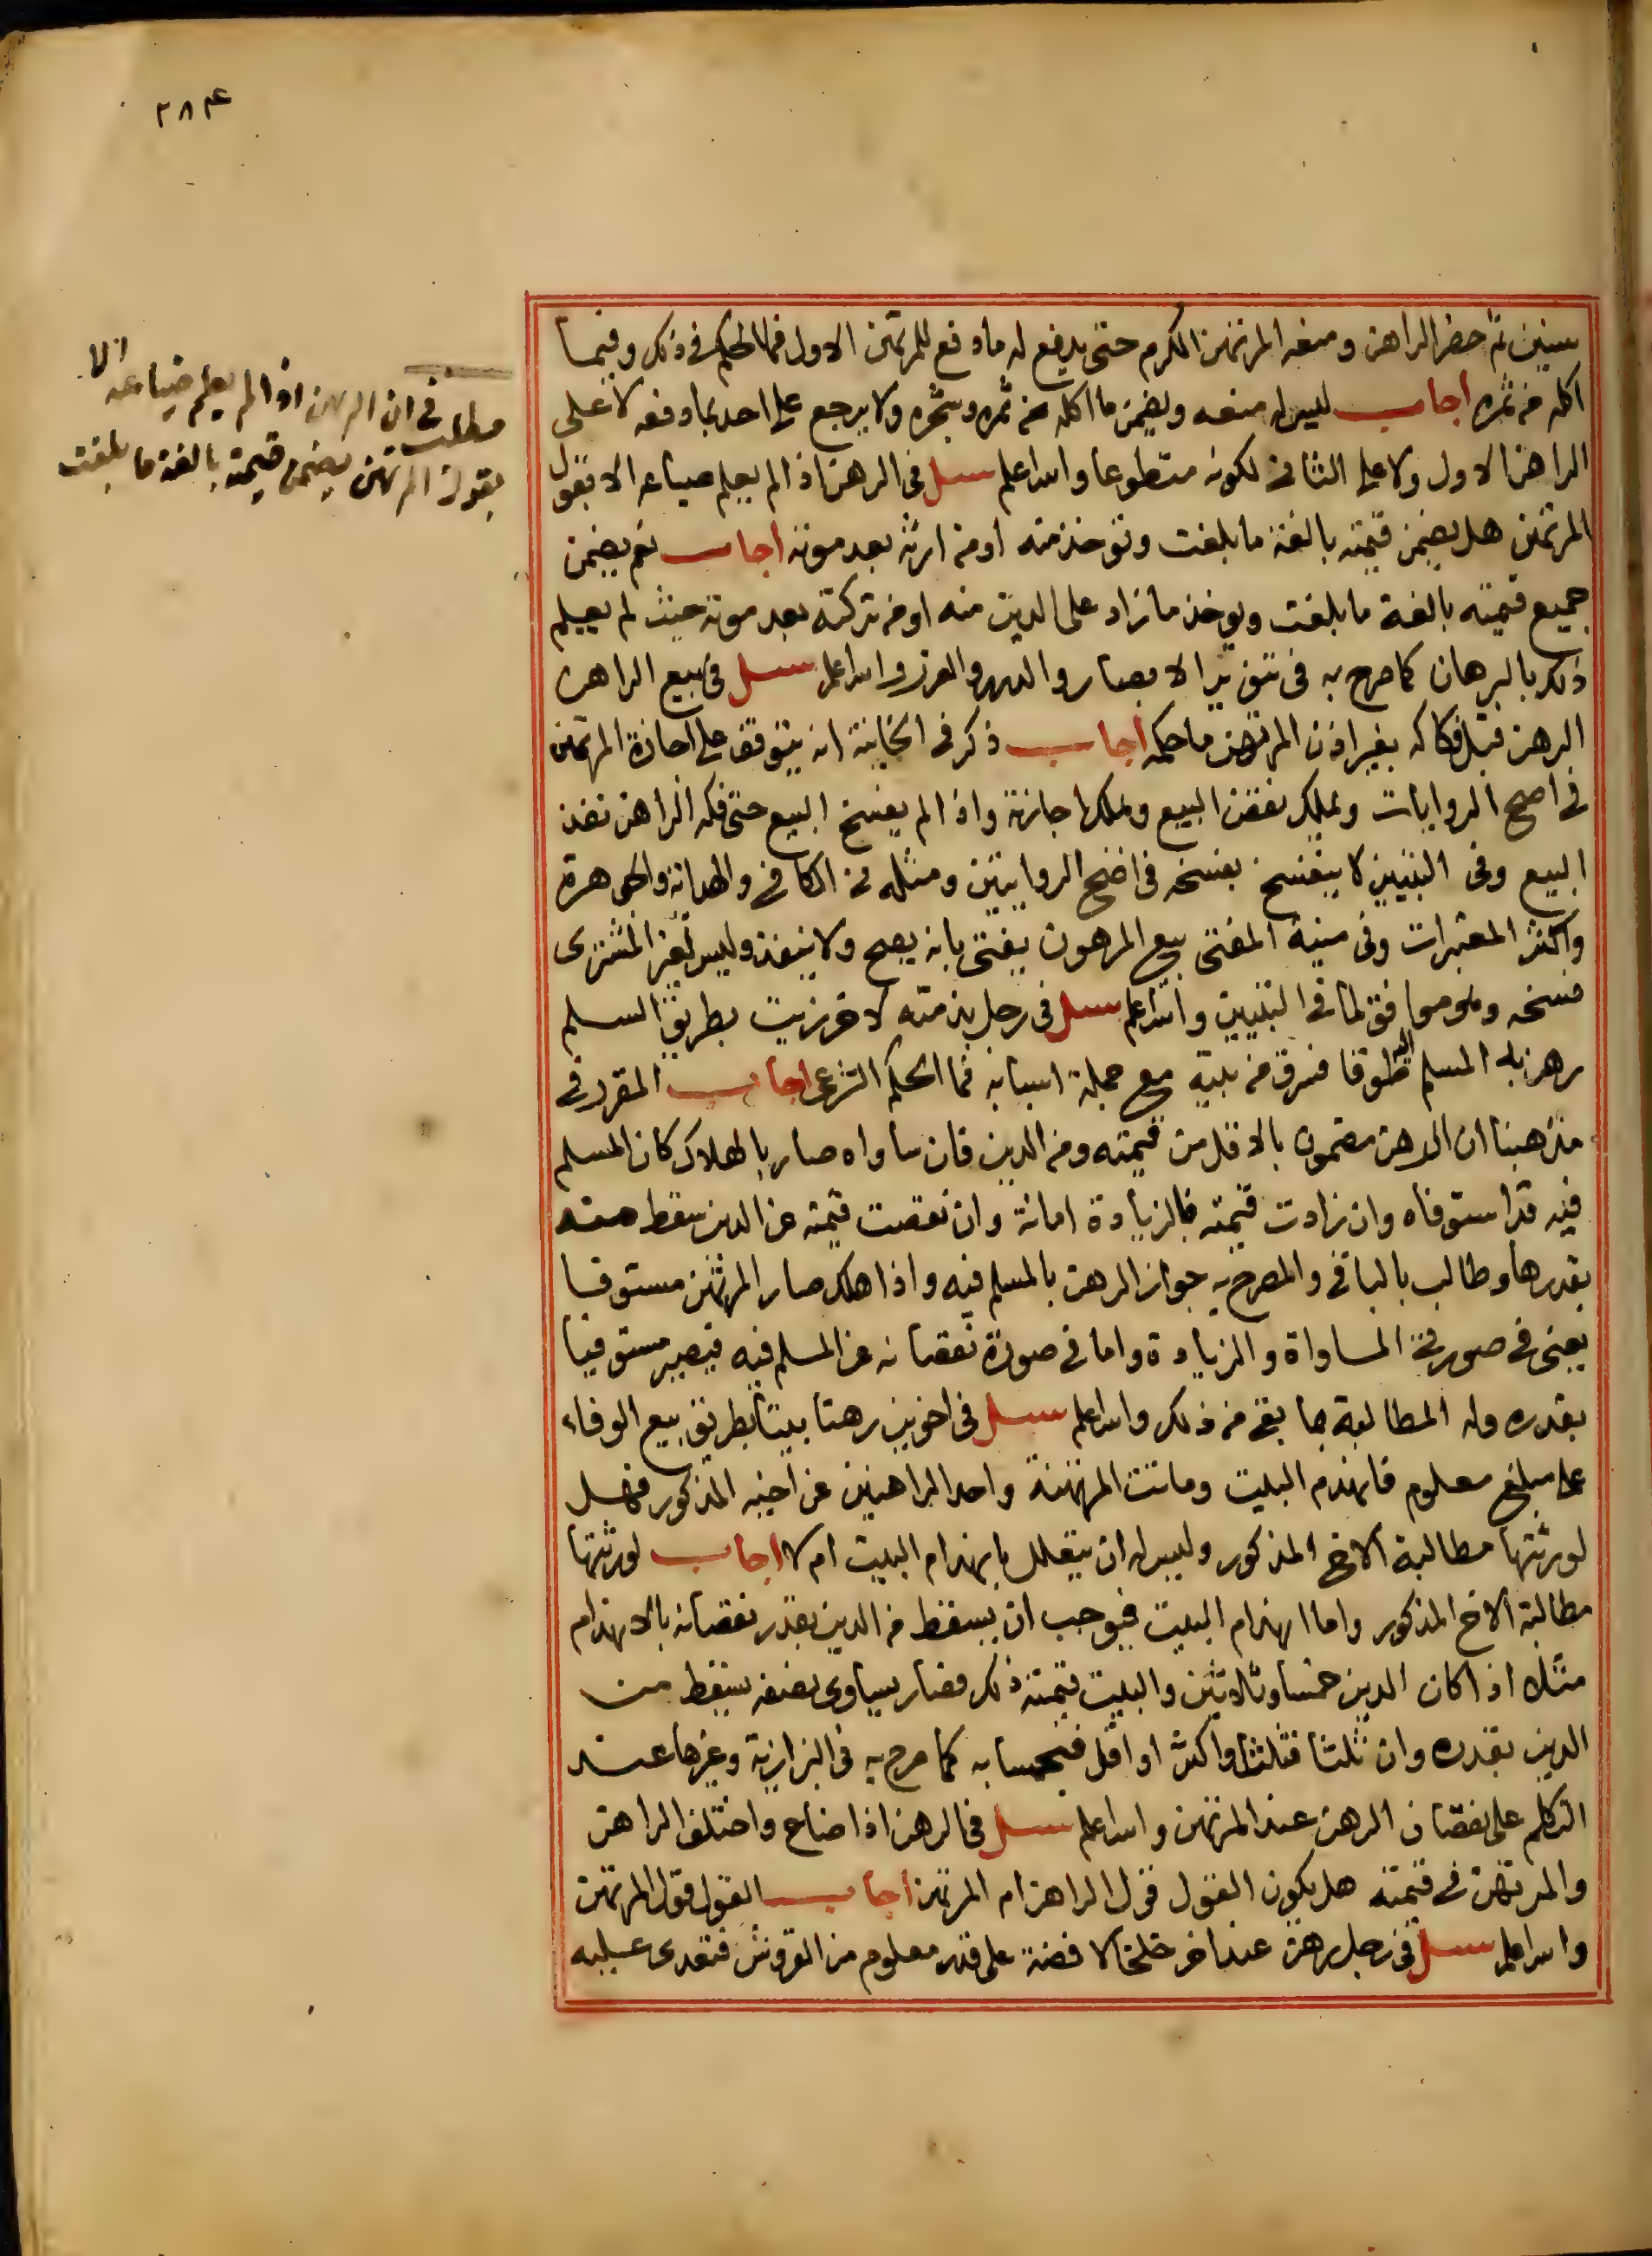 ٢٨٤
مطلب في ان الرهن اذا لم يعلم ضياعه الا
بقول المرتهن يضمن قيمته بالغة ما بلغت
سنين ثم حضر الراهن ومنعه المرتهن الكرم حتى يدفع له ما دفع للمرتهن الاول فما الحكم في ذلك وفيما
اكله من ثمره اجاب ليس له منعه ويضمن ما اكله من ثمره وشجره ولا يرجع على احد بما دفعه لا على
الراهن الاول ولا على الثاني لكونه متطوعا والله اعلم سئل في الرهن اذا لم يعلم ضياعه الا بقول
المرتهن هل يضمن قيمته بالغة ما بلغت وتوخذ منه او من ارثه بعد موته اجاب نعم يضمن
جميع قيمته بالغة ما بلغت ويوخذ ما زاد على الدين منه او من تركته بعد موته حيث لم يعلم
ذلك بالبرهان كما صرح به في تنوير الابصار والدرر والغرر والله اعلم سئل في بيع الراهن
الرهن قبل فكاكه بغير اذن المرتهن ما حكمه اجاب ذكر في الخانية انه يتوقف على اجازة المرتهن
في اصح الروايات ويملك نقض البيع ويملك اجازته واذا لم يفسخ البيع حتى فكه الراهن نفذ
البيع وفي التبيين لا ينفسخ بفسخه في اصح الروايتين ومثله في الكافي والهداية والجوهرة
واكثر المعتبرات وفي منية المفتي بيع المرهون يفتى بانه يصح ولا ينفذ وليس لغير المشتري
فسخه وهو موافق لما في التبيين والله اعلم سئل في رجل بذمته لاخر زيت بطريق السلم
رهن به المسلم اليه طوقا فسرق من بيته مع جملة اسبابه فما الحكم الشرعي اجاب المقرر في
مذهبنا ان الرهن مضمون بالاقل من قيمته ومن الدين فان ساواه صار بالهلاك كان المسلم
فيه قد استوفاه وان زادت قيمته فالزيادة امانة وان نقصت قيمته عن الدين سقط منه
بقدرها وطالب بالباقي والمصرح به جواز الرهن بالمسلم فيه واذا هلك صار المرتهن مستوفيا
يعني في صورتي المساواة والزيادة واما في صورة نقصانه عن المسلم فيه فيصير مستوفيا
بقدره وله المطالبة بما بقي من ذلك والله اعلم سئل في اخوين رهنا بيتا بطريق بيع الوفاء
على مبلغ معلوم فانهدم البيت وماتت المرتهنة واحد الراهنين عن اخيه المذكور فهل
لورثتها مطالبة الاخ المذكور وليس له ان يتعلل بانهدام البيت ام لا اجاب لورثتها
مطالبة الاخ المذكور واما انهدام البيت فيوجب ان يسقط من الدين بقدر نقصانه بالانهدام
مثلا اذا كان الدين خمسا وثلاثين والبيت قيمته ذلك فصار يساوي نصفه يسقط من
الدين بقدره وان ثلثا فثلثا او اكثر او اقل فبحسابه كما صرح به في البزازية وغيرها عند
التكلم على نقصان الرهن عند المرتهن والله اعلم سئل في الرهن اذا ضاع واختلف الراهن
والمرتهن في قيمته هل يكون القول قول الراهن ام المرتهن اجاب القول قول المرتهن
والله اعلم سئل في رجل رهن عند اخر خلخالا فضة على قدر معلوم من القروش فتعدى عليه